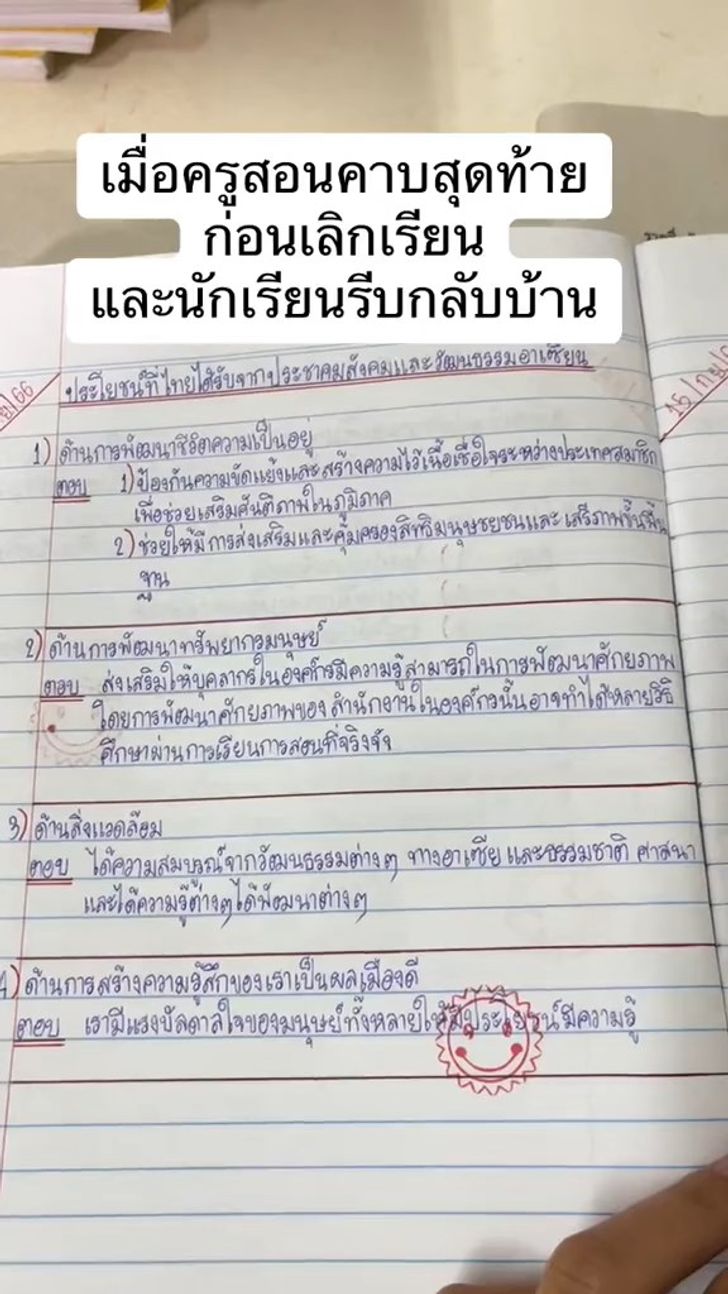 เมื่อครูสอนคาบสุดท้าย
ก่อนเลิกเรียน
และนักเรียนรีบกลับบ้าน
66
ประโยชน์ที่ไทยได้รับจากประชาคมสังคมและวัฒนธรรมอาเซียน
1) ด้านการพัฒนาชีวิตความเป็นอยู่
ตอบ 1) ป้องกันความขัดแย้งและสร้างความไว้เนื้อเชื่อใจระหว่างประเทศสมาชิก
เพื่อช่วยเสริมศันติภาพในภูมิภาค
2) ช่วยให้มีการส่งเสริมและคุ้มครองสิทธิมนุษชยชนและเสรีภาพขั้นพื้น
ฐาน
2) ด้านการพัฒนาทรัพยากรมนุษย์
ตอบ ส่งเสริมให้บุคลากรในองค์กรมีความรู้สามารถในการพัฒนาศักยภาพ
โดยการพัฒนาศักยภาพของ สำนักงานในองค์กรนั้นอาจทำได้หลายวิธี
ศึกษาผ่านการเรียนการสอนที่จริงจัง
3) ด้านสิ่งแวดล้อม
ตอบ ได้ความสมบูรณ์จากวัฒนธรรมต่างๆ ทางอาเซีย และธรรมชาติ ศาสนา
และได้ความรู้ต่างๆได้พัฒนาต่างๆ
4) ด้านการสร้างความรู้สึกของเราเป็นผลเมืองดี
ตอบ เรามีแรงบัลดาลใจของมนุษย์ทั้งหลายให้มีประโยชน์มีความรู้